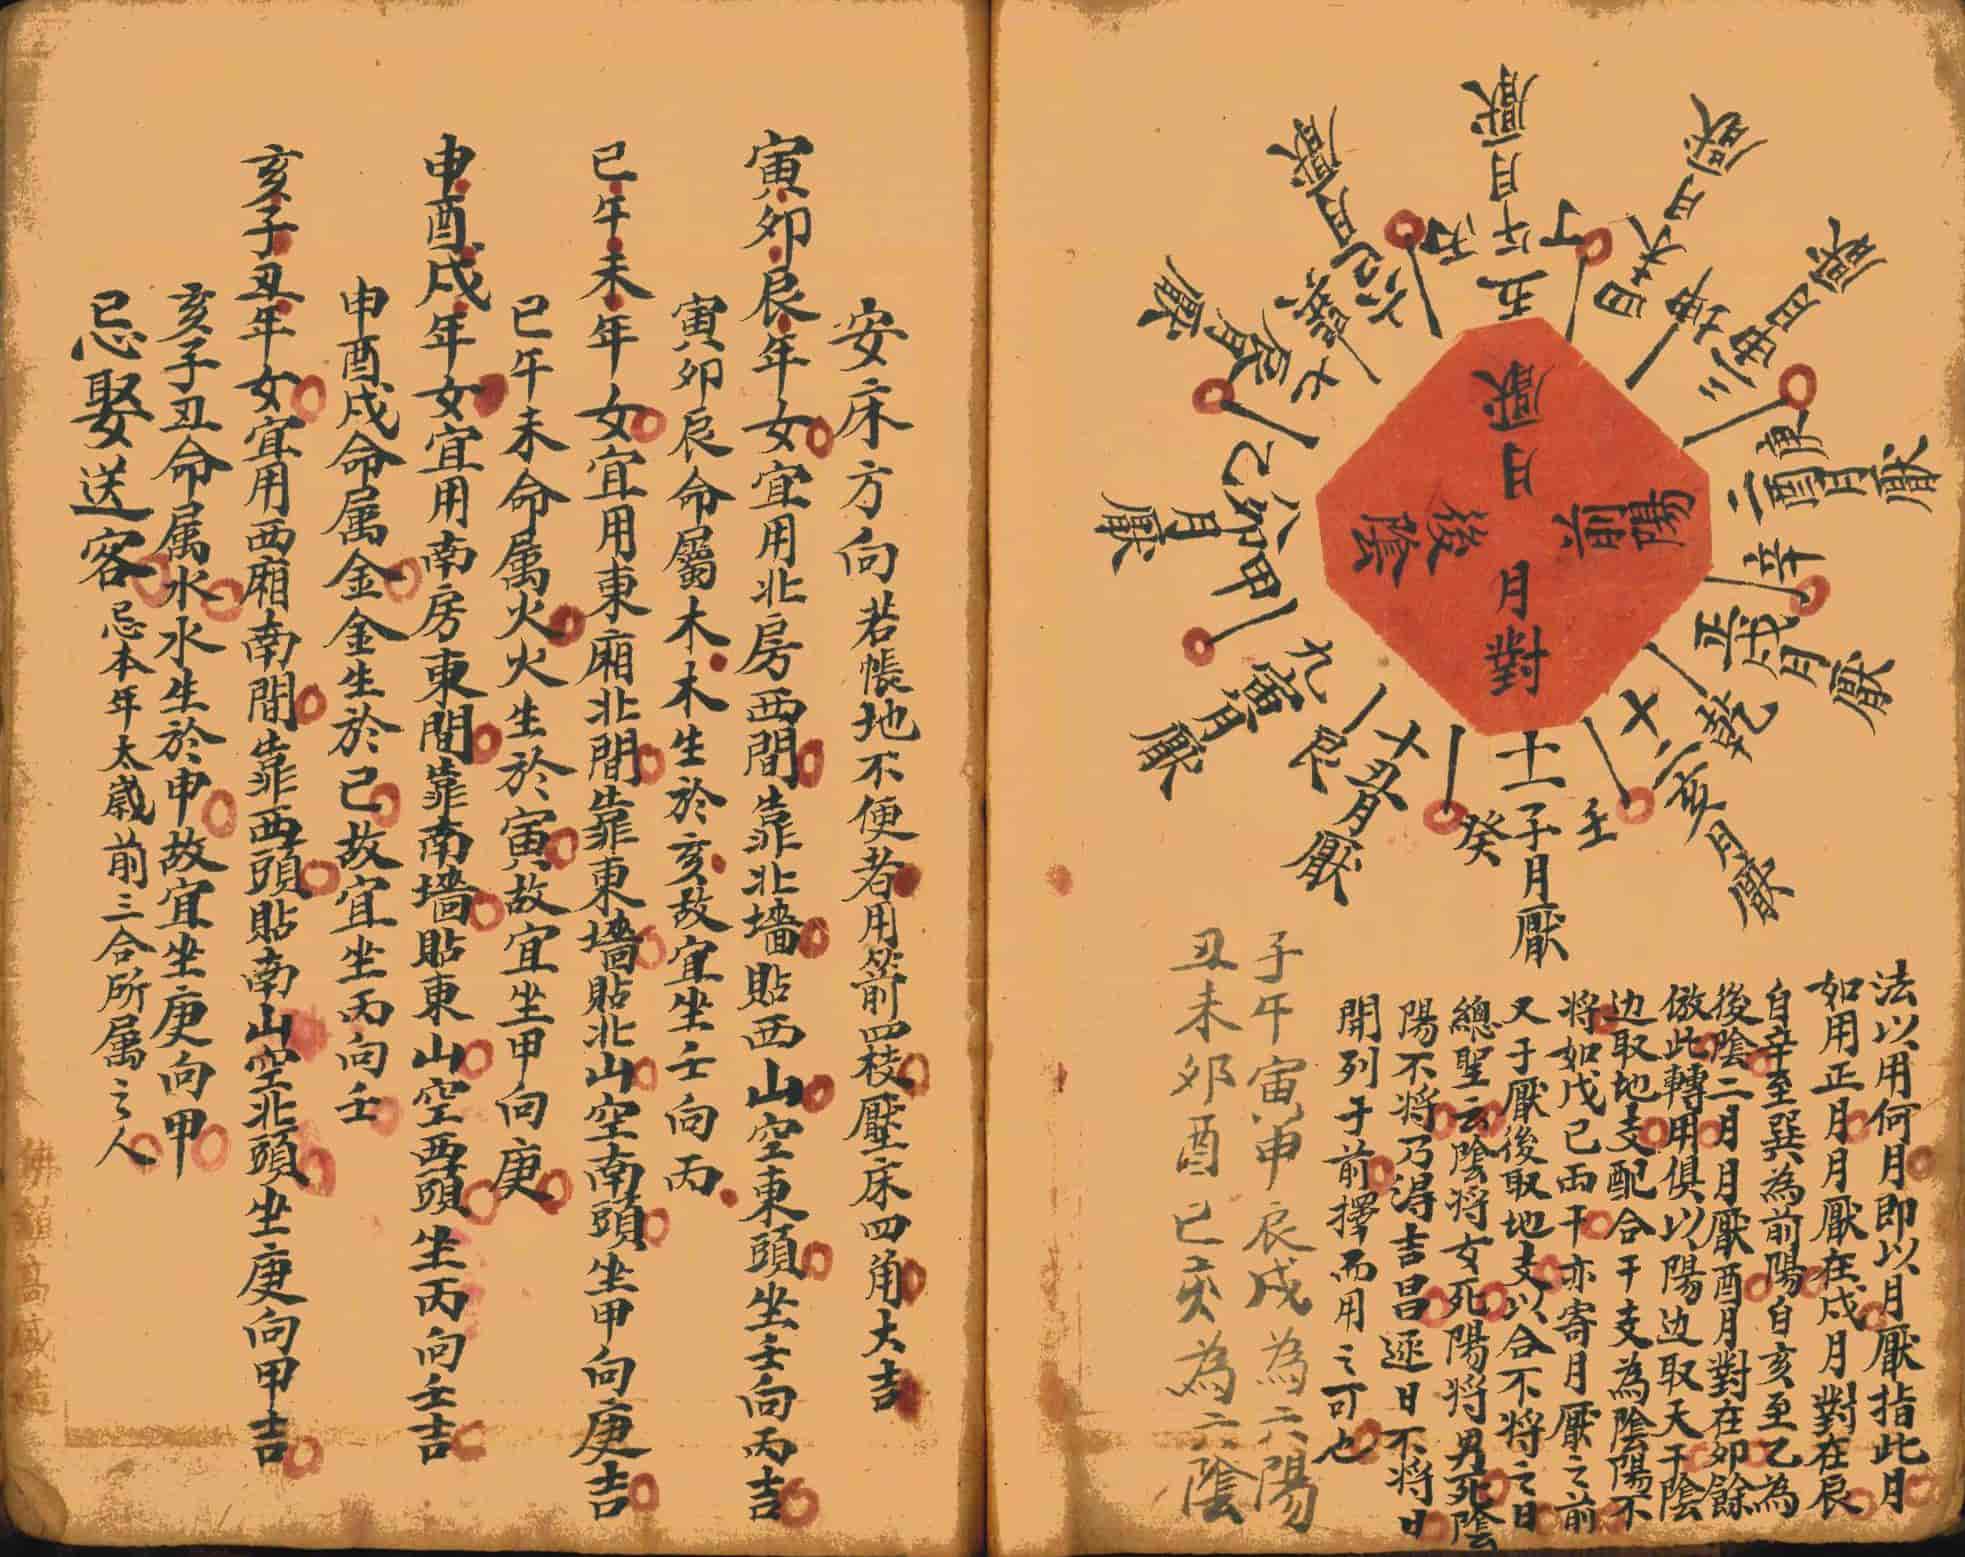 厭月
前陽
後陰
月對
五午月厭
丁
未月厭
坤
三申月厭
庚
二酉月厭
辛
正戌月厭
乾
十二亥月厭
壬
十一子月厭
癸
十丑月厭
艮
九寅月厭
甲
八卯月厭
乙
七辰月厭
巽
六巳月厭
丙
法以用何月即以月厭指此月
如用正月月厭在戌月對在辰
自辛至巽為前陽自亥至乙為
後陰二月月厭酉月對在卯餘
倣此轉用俱以陽边取天干陰
边取地支配合干支為陰陽不
将如戊己兩干亦寄月厭之前
又于厭後取地支以合不将之日
總聖云陰将女死陽将男死陰
陽不将乃得吉昌逐日不将日
開列于前擇而用之可也
子午寅申辰戌為六陽
丑未卯酉巳亥為六陰
安床方向若帳地不便者用箭四稜壓床四角大吉
寅卯辰年女宜用北房西間靠北墻貼西山空東頭坐壬向丙吉
寅卯辰命屬木木生於亥故宜坐壬向丙
巳午未年女宜用東廂北間靠東墻貼北山空南頭坐甲向庚吉
巳午未命属火火生於寅故宜坐甲向庚
申酉戌年女宜用南房東間靠南墻貼東山空西頭坐丙向壬吉
申酉戌命属金金生於巳故宜坐丙向壬
亥子丑年女宜用西廂南間靠西頭貼南山空北頭坐庚向甲吉
亥子丑命属水水生於申故宜坐庚向甲
忌娶送客忌本年太歲前三合所属之人